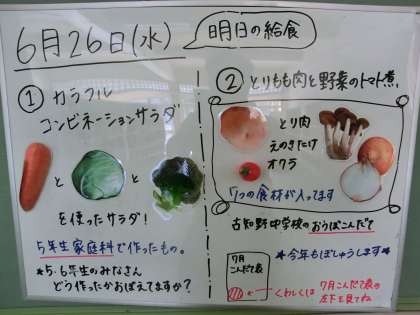 6月26日(水) 明日の給食
① カラフル
コンビネーションサラダ
と
と
を使ったサラダ!
5年生家庭科で作ったもの。
*5・6年生のみなさん
どう作ったかおぼえてますか?
② とりもも肉と野菜のトマト煮
とり肉
えのきだけ
オクラ
7つの食材が入ってます
古知野中学校のおうぼこんだて
*今年もぼしゅうします*
7月
こんだて表
くわしくは 7月こんだて表の
左下を見てね